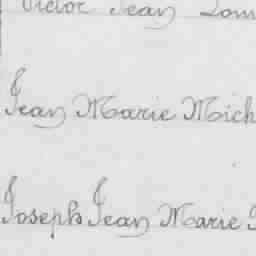 Victor Jean
Jean Marie Mich
Joseph Jean Marie